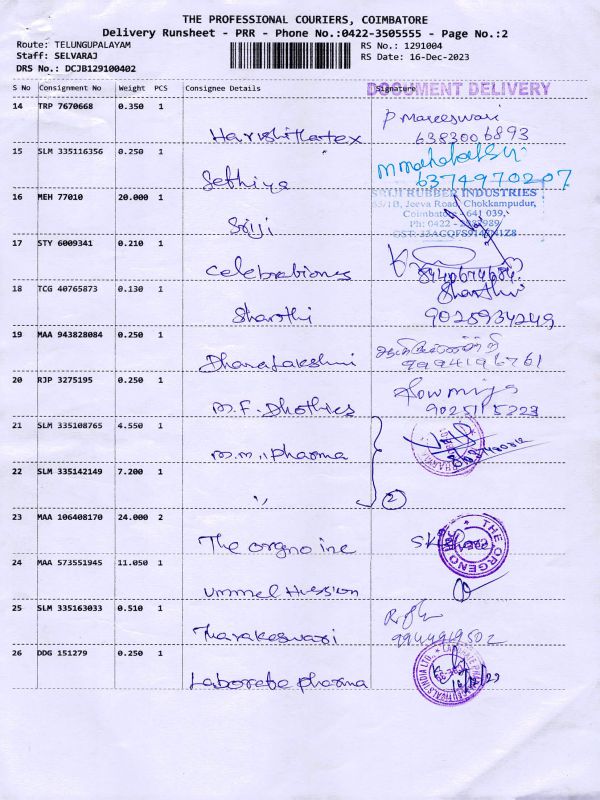 THE PROFESSIONAL COURIERS, COIMBATORE
Delivery Runsheet - PRR - Phone No.:0422-3505555 - Page No.:2
Route: TELUNGUPALAYAM RS No.: 1291004
Staff: SELVARAJ RS Date: 16-Dec-2023
DRS No.: DCJB129100402
DOCUMENT DELIVERY
S No Consignment No Weight PCS Consignee Details Signature
14 TRP 7670668 0.350 1
P Mareeswari
Harishitlartex 6383006893
15 SLM 335116356 0.250 1
Sethiya 6374970207
16 MEH 77010 20.000 1
SRIJI RUBBER INDUSTRIES
83/1B, Jeeva Road, Chokkampudur,
Sriji Coimbatore - 641 039,
Ph: 0422
GST: 33AGQFS9145N1Z8
17 STY 6009341 0.210 1
Celebrations
18 TCG 40765873 0.130 1
Sharthi
Sharthi 9025934249
19 MAA 943828084 0.250 1
Dhanalakshmi 9994196761
20 RJP 3275195 0.250 1
Sowmiya
M.F. Dhothies 9025115223
21 SLM 335108765 4.550 1
M.M. Pharma
22 SLM 335142149 7.200 1
,, 2
23 MAA 106408170 24.000 2
The orgno inc THE ORGENO INC
24 MAA 573551945 11.050 1
Ummel Hussion
25 SLM 335163033 0.510 1
Tharakeswari 9944919502
26 DDG 151279 0.250 1
Laborate pharma
16/12/23